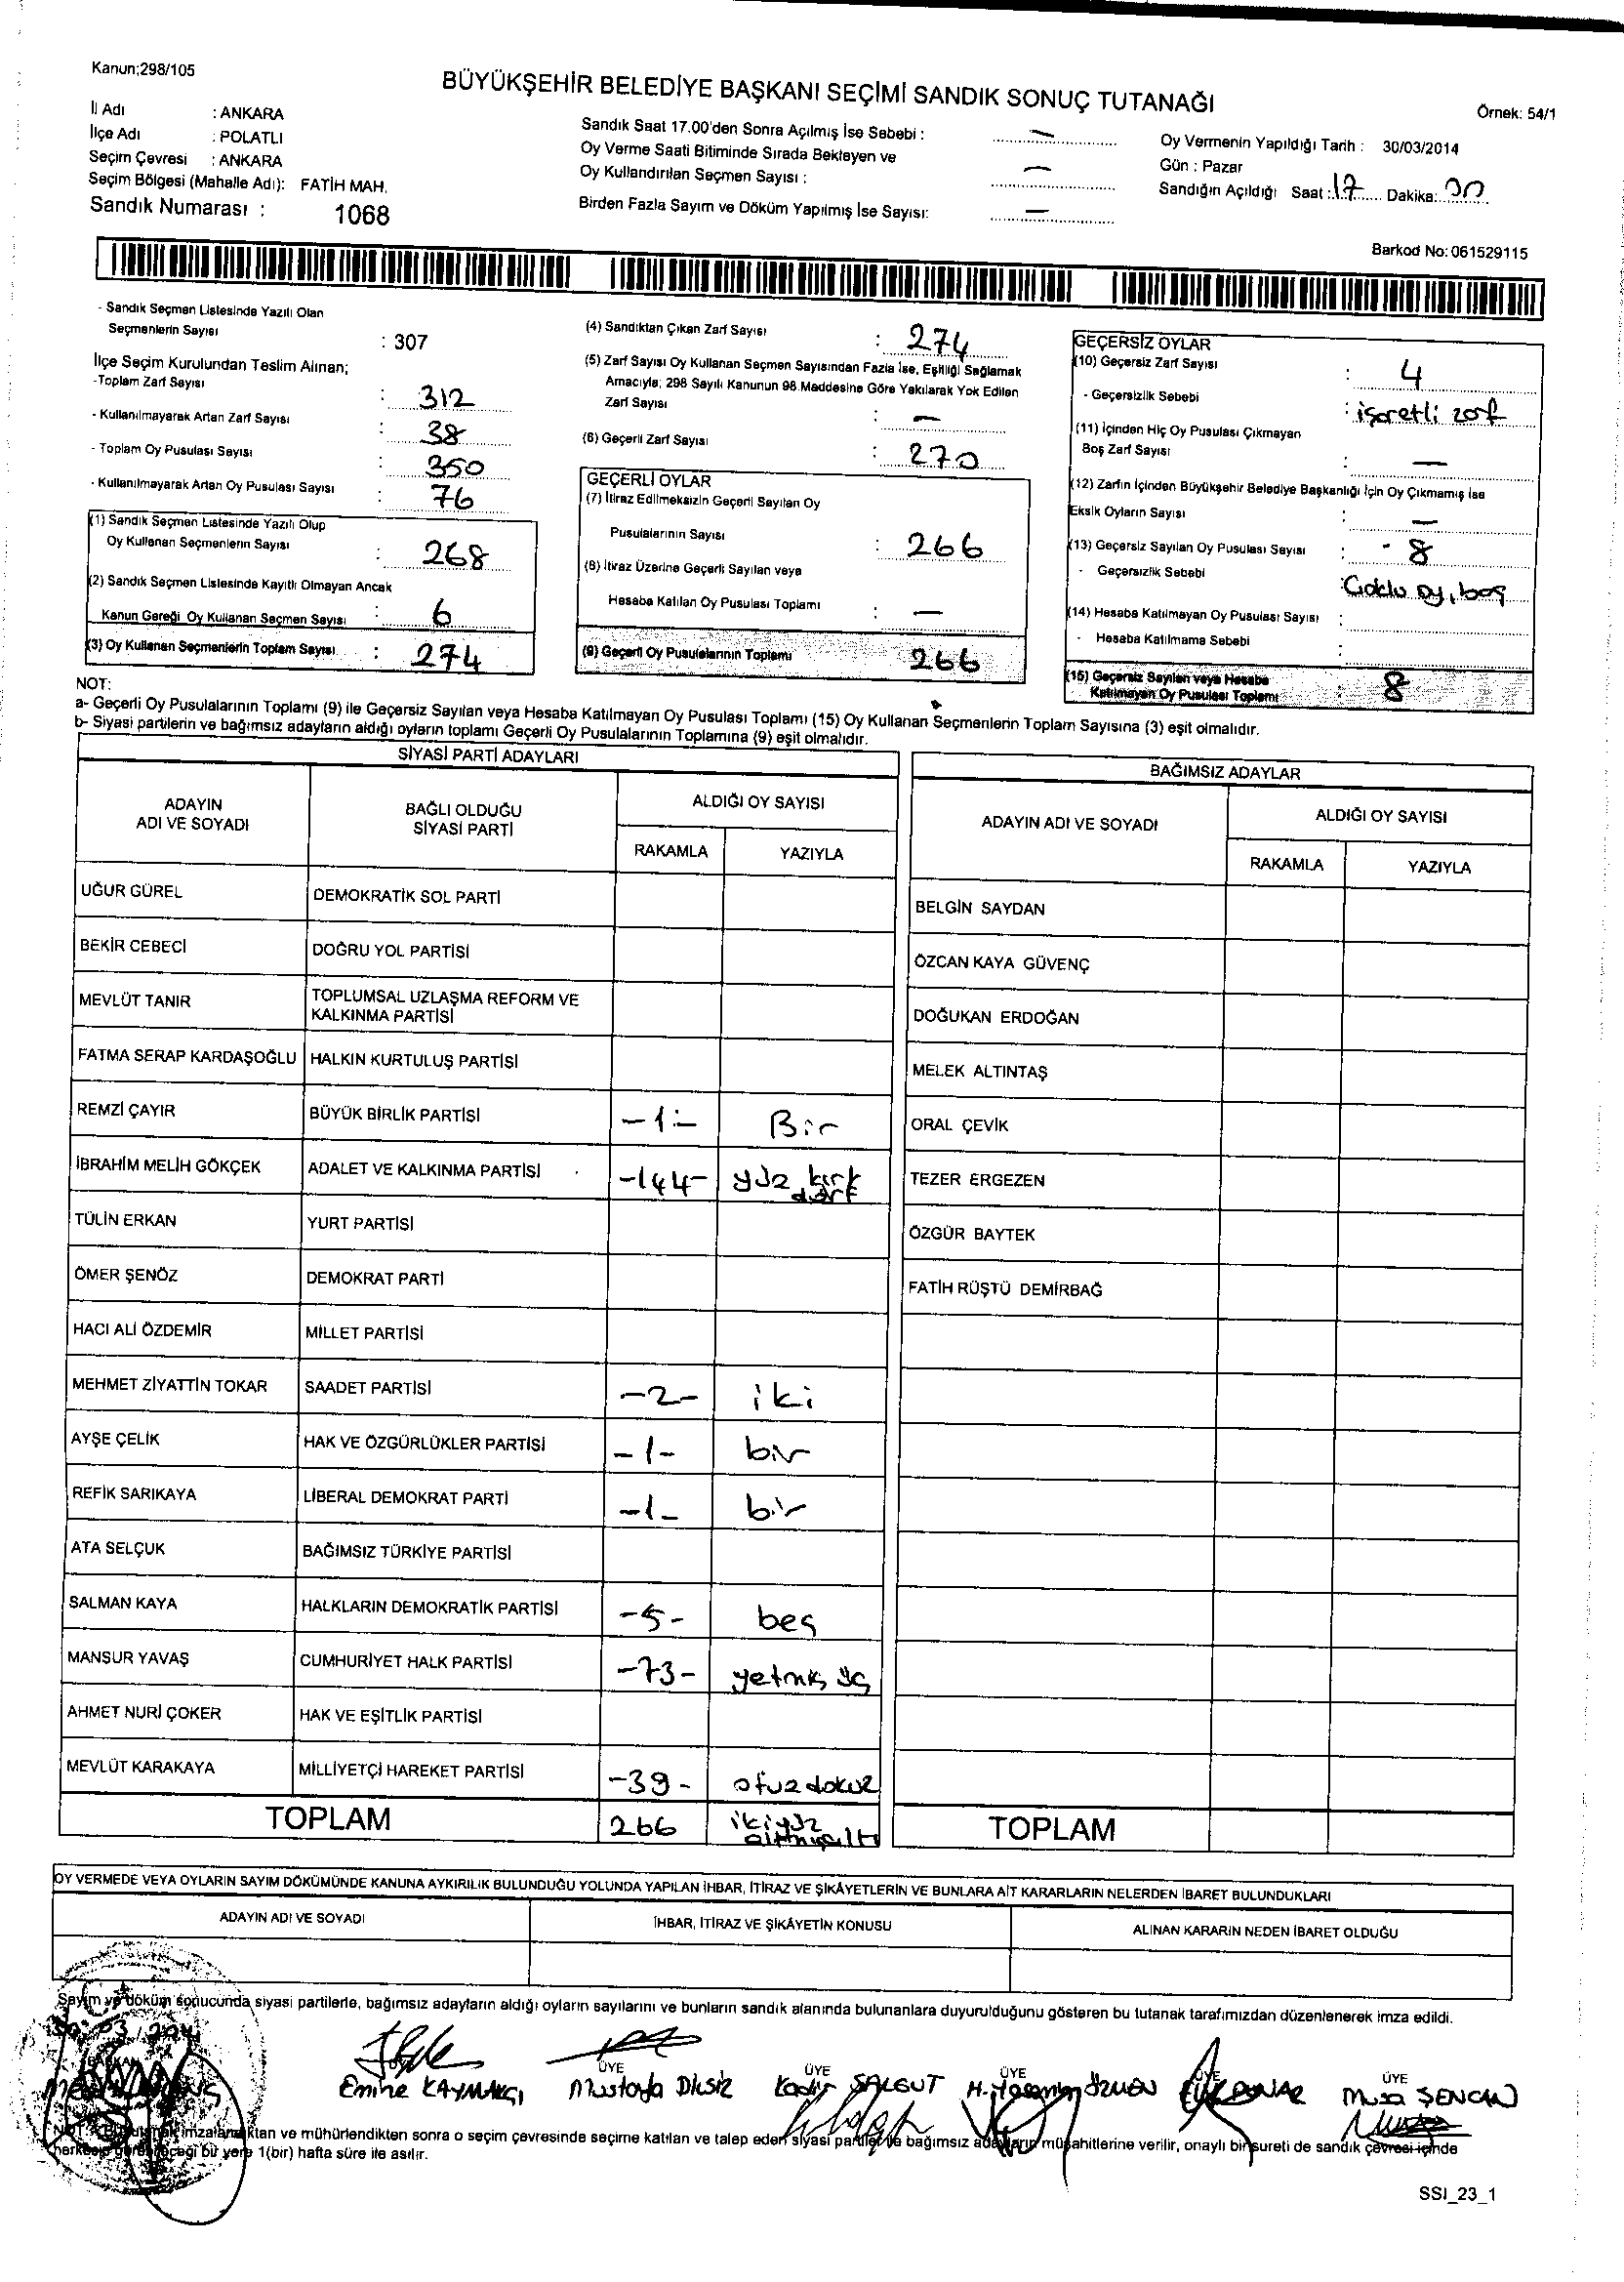 Kanun;298/105
BÜYÜKŞEHİR BELEDİYE BAŞKANI SEÇİMİ SANDIK SONUÇ TUTANAĞI
Örnek: 54/1
İl Adı : ANKARA
İlçe Adı : POLATLI
Seçim Çevresi : ANKARA
Seçim Bölgesi (Mahalle Adı): FATİH MAH.
Sandık Numarası : 1068
Sandık Saat 17.00'den Sonra Açılmış İse Sebebi : —
Oy Verme Saati Bitiminde Sırada Bekleyen ve
Oy Kullandırılan Seçmen Sayısı : —
Birden Fazla Sayım ve Döküm Yapılmış İse Sayısı: —
Oy Vermenin Yapıldığı Tarih : 30/03/2014
Gün : Pazar
Sandığın Açıldığı Saat : 17 Dakika: 00
Barkod No: 061529115
- Sandık Seçmen Listesinde Yazılı Olan
Seçmenlerin Sayısı : 307
İlçe Seçim Kurulundan Teslim Alınan;
-Toplam Zarf Sayısı : 312
- Kullanılmayarak Artan Zarf Sayısı : 38
- Toplam Oy Pusulası Sayısı : 350
- Kullanılmayarak Artan Oy Pusulası Sayısı : 76
(1) Sandık Seçmen Listesinde Yazılı Olup
Oy Kullanan Seçmenlerin Sayısı : 268
(2) Sandık Seçmen Listesinde Kayıtlı Olmayan Ancak
Kanun Gereği Oy Kullanan Seçmen Sayısı : 6
(3) Oy Kullanan Seçmenlerin Toplam Sayısı : 274
(4) Sandıktan Çıkan Zarf Sayısı : 274
(5) Zarf Sayısı Oy Kullanan Seçmen Sayısından Fazla İse, Eşitliği Sağlamak
Amacıyla; 298 Sayılı Kanunun 98.Maddesine Göre Yakılarak Yok Edilen
Zarf Sayısı : —
(6) Geçerli Zarf Sayısı : 270
GEÇERLİ OYLAR
(7) İtiraz Edilmeksizin Geçerli Sayılan Oy
Pusulalarının Sayısı : 266
(8) İtiraz Üzerine Geçerli Sayılan veya
Hesaba Katılan Oy Pusulası Toplamı : —
(9) Geçerli Oy Pusulalarının Toplamı 266
GEÇERSİZ OYLAR
(10) Geçersiz Zarf Sayısı : 4
- Geçersizlik Sebebi : işaretli zarf
(11) İçinden Hiç Oy Pusulası Çıkmayan
Boş Zarf Sayısı : —
(12) Zarfın İçinden Büyükşehir Belediye Başkanlığı İçin Oy Çıkmamış İse
Eksik Oyların Sayısı : —
(13) Geçersiz Sayılan Oy Pusulası Sayısı : - 8
- Geçersizlik Sebebi : Çoklu oy, boş
(14) Hesaba Katılmayan Oy Pusulası Sayısı :
- Hesaba Katılmama Sebebi :
(15) Geçersiz Sayılan veya Hesaba
Katılmayan Oy Pusulası Toplamı : 8
NOT:
a- Geçerli Oy Pusulalarının Toplamı (9) ile Geçersiz Sayılan veya Hesaba Katılmayan Oy Pusulası Toplamı (15) Oy Kullanan Seçmenlerin Toplam Sayısına (3) eşit olmalıdır.
b- Siyasi partilerin ve bağımsız adayların aldığı oyların toplamı Geçerli Oy Pusulalarının Toplamına (9) eşit olmalıdır.
SİYASİ PARTİ ADAYLARI
ADAYIN ADI VE SOYADI
BAĞLI OLDUĞU SİYASİ PARTİ
ALDIĞI OY SAYISI
RAKAMLA YAZIYLA
UĞUR GÜREL DEMOKRATİK SOL PARTİ
BEKİR CEBECİ DOĞRU YOL PARTİSİ
MEVLÜT TANIR TOPLUMSAL UZLAŞMA REFORM VE
KALKINMA PARTİSİ
FATMA SERAP KARDAŞOĞLU HALKIN KURTULUŞ PARTİSİ
REMZİ ÇAYIR BÜYÜK BİRLİK PARTİSİ -1- Bir
İBRAHİM MELİH GÖKÇEK ADALET VE KALKINMA PARTİSİ -144- yüz kırk dört
TÜLİN ERKAN YURT PARTİSİ
ÖMER ŞENÖZ DEMOKRAT PARTİ
HACI ALİ ÖZDEMİR MİLLET PARTİSİ
MEHMET ZİYATTİN TOKAR SAADET PARTİSİ -2- iki
AYŞE ÇELİK HAK VE ÖZGÜRLÜKLER PARTİSİ -1- bir
REFİK SARIKAYA LİBERAL DEMOKRAT PARTİ -1- bir
ATA SELÇUK BAĞIMSIZ TÜRKİYE PARTİSİ
SALMAN KAYA HALKLARIN DEMOKRATİK PARTİSİ -5- beş
MANSUR YAVAŞ CUMHURİYET HALK PARTİSİ -73- yetmiş üç
AHMET NURİ ÇOKER HAK VE EŞİTLİK PARTİSİ
MEVLÜT KARAKAYA MİLLİYETÇİ HAREKET PARTİSİ -39- otuz dokuz
TOPLAM 266 ikiyüz altmışaltı
BAĞIMSIZ ADAYLAR
ADAYIN ADI VE SOYADI
ALDIĞI OY SAYISI
RAKAMLA YAZIYLA
BELGİN SAYDAN
ÖZCAN KAYA GÜVENÇ
DOĞUKAN ERDOĞAN
MELEK ALTINTAŞ
ORAL ÇEVİK
TEZER ERGEZEN
ÖZGÜR BAYTEK
FATİH RÜŞTÜ DEMİRBAĞ
TOPLAM
OY VERMEDE VEYA OYLARIN SAYIM DÖKÜMÜNDE KANUNA AYKIRILIK BULUNDUĞU YOLUNDA YAPILAN İHBAR, İTİRAZ VE ŞİKÂYETLERİN VE BUNLARA AİT KARARLARIN NELERDEN İBARET BULUNDUKLARI
ADAYIN ADI VE SOYADI İHBAR, İTİRAZ VE ŞİKÂYETİN KONUSU ALINAN KARARIN NEDEN İBARET OLDUĞU
Sayım ve döküm sonucunda siyasi partilerle, bağımsız adayların aldığı oyların sayılarını ve bunların sandık alanında bulunanlara duyurulduğunu gösteren bu tutanak tarafımızdan düzenlenerek imza edildi.
BAŞKAN ÜYE ÜYE ÜYE ÜYE ÜYE
Emine KAYMAKÇI Mustafa Dilsiz Kadir SALGUT ÖZMEN Musa ŞENCAN
imzalandıktan ve mühürlendikten sonra o seçim çevresinde seçime katılan ve talep eden siyasi partiler ile bağımsız adayların müşahitlerine verilir, onaylı bir sureti de sandık çevresi içinde
herkesin görebileceği bir yere 1(bir) hafta süre ile asılır.
SSI_23_1